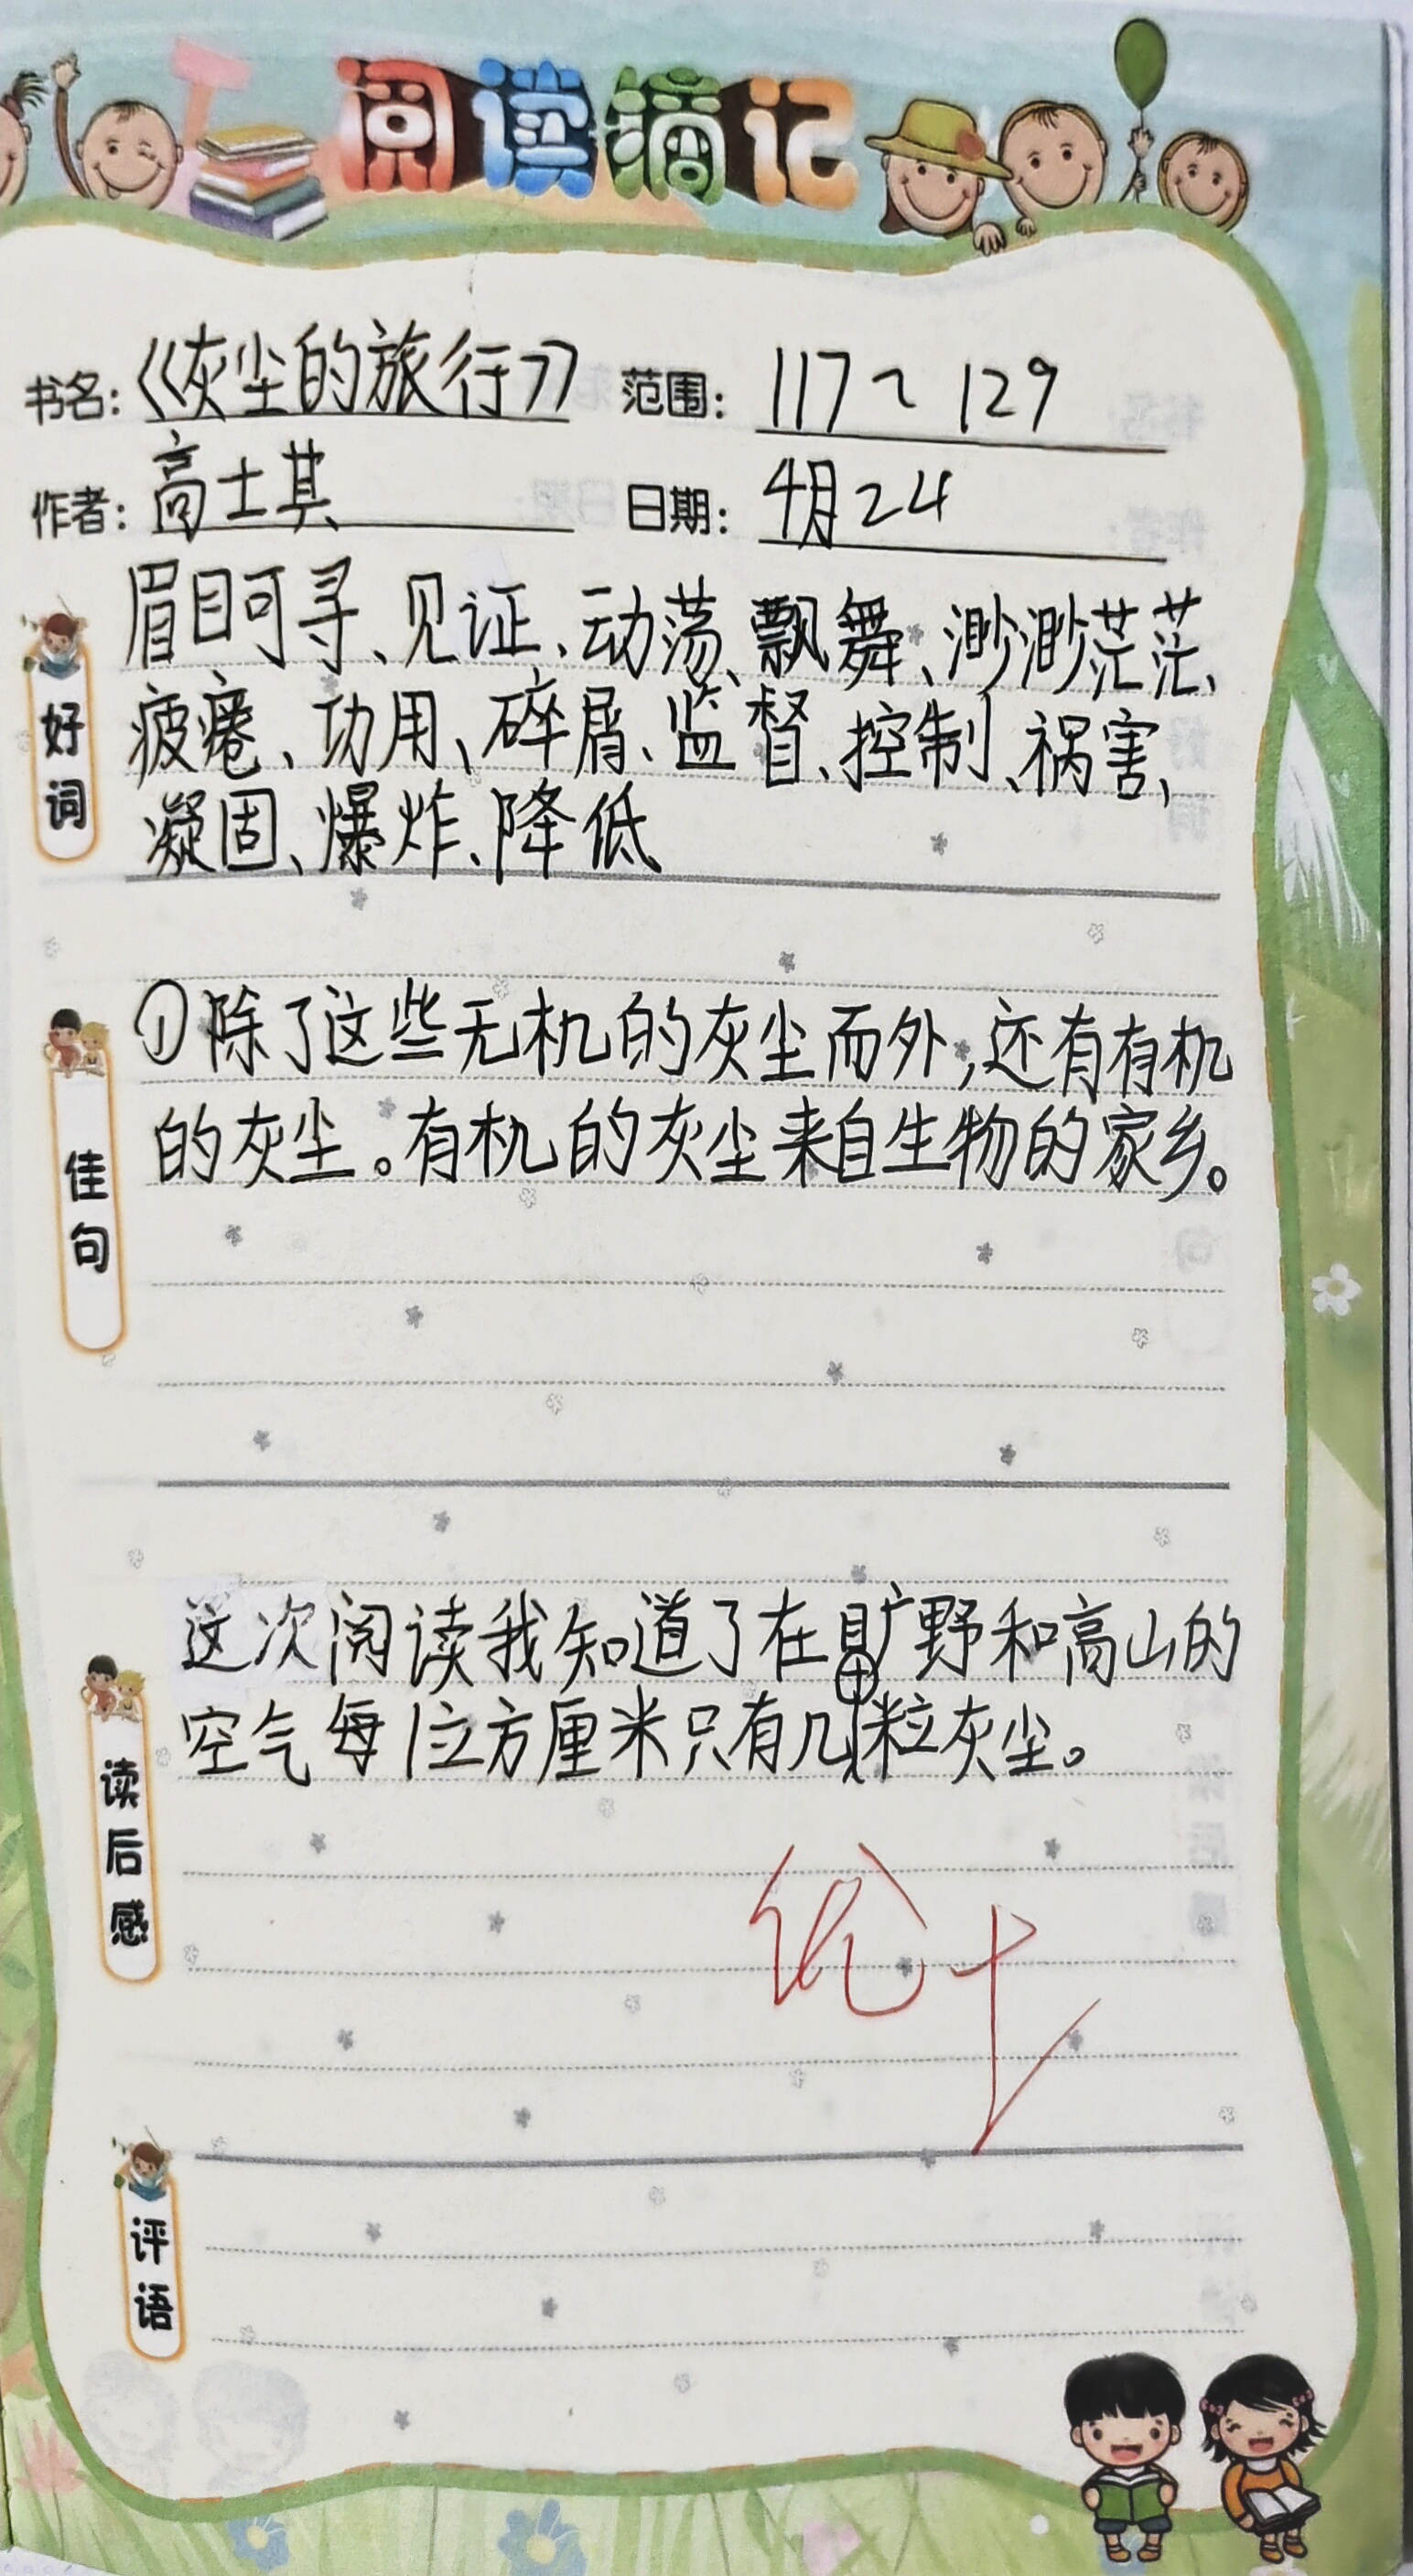 阅读摘记
书名：《灰尘的旅行》 范围：117~129
作者：高士其 日期：4月24
好词
眉目可寻、见证、动荡、飘舞、渺渺茫茫、
疲、功用、碎屑、监督、控制、祸害、
凝固、爆炸、降低
佳句
①除了这些无机的灰尘而外，还有有机
的灰尘。有机的灰尘来自生物的家乡。
读后感
这次阅读我知道了在旷野和高山的
空气每1立方厘米只有几十粒灰尘。
优+
评语